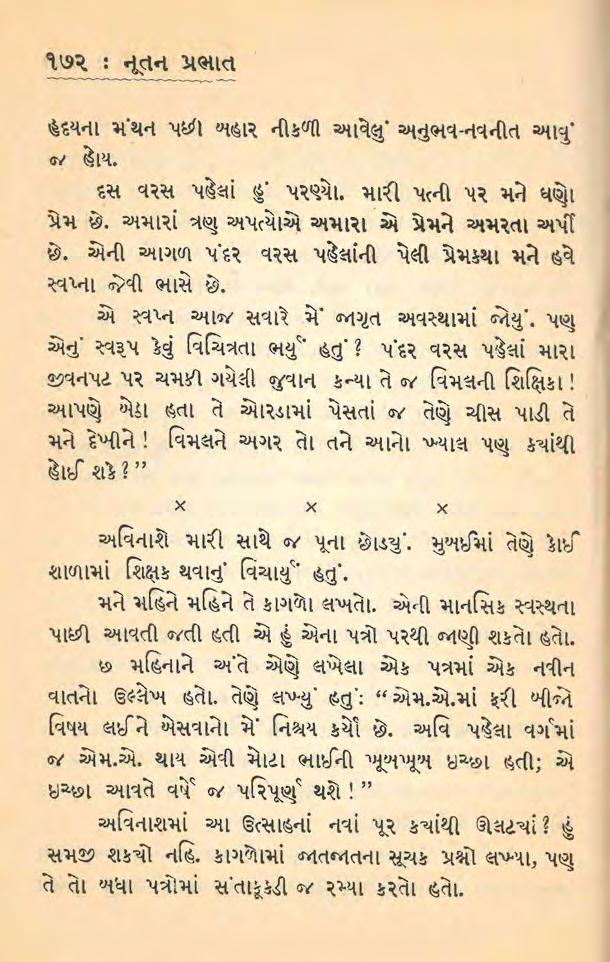 ૧૭૨ : નૂતન પ્રભાત
હૃદયના મંથન પછી બહાર નીકળી આવેલું અનુભવ-નવનીત આવું
જ હોય.
દસ વરસ પહેલાં હું પરણ્યો. મારી પત્ની પર મને ઘણો
પ્રેમ છે. અમારાં ત્રણ અપત્યોએ અમારા એ પ્રેમને અમરતા અર્પી
છે. એની આગળ પંદર વરસ પહેલાંની પેલી પ્રેમકથા મને હવે
સ્વપ્ના જેવી ભાસે છે.
એ સ્વપ્ન આજ સવારે મેં જાગૃત અવસ્થામાં જોયું. પણ
એનું સ્વરૂપ કેવું વિચિત્રતા ભર્યું હતું ? પંદર વરસ પહેલાં મારા
જીવનપટ પર ચમકી ગયેલી જુવાન કન્યા તે જ વિમલની શિક્ષિકા !
આપણે બેઠા હતા તે ઓરડામાં પેસતાં જ તેણે ચીસ પાડી તે
મને દેખીને ! વિમલને અગર તો તને આનો ખ્યાલ પણ ક્યાંથી
હોઈ શકે ? ”
× × ×
અવિનાશે મારી સાથે જ પૂના છોડ્યું. મુંબઈમાં તેણે કોઈ
શાળામાં શિક્ષક થવાનું વિચાર્યું હતું.
મને મહિને મહિને તે કાગળો લખતો. એની માનસિક સ્વસ્થતા
પાછી આવતી જતી હતી એ હું એના પત્રો પરથી જાણી શકતો હતો.
છ મહિનાને અંતે એણે લખેલા એક પત્રમાં એક નવીન
વાતનો ઉલ્લેખ હતો. તેણે લખ્યું હતું : “ એમ.એ.માં ફરી બીજો
વિષય લઈને બેસવાનો મેં નિશ્ચય કર્યો છે. અવિ પહેલા વર્ગમાં
જ એમ.એ. થાય એવી મોટા ભાઈની ખૂબખૂબ ઇચ્છા હતી; એ
ઇચ્છા આવતે વર્ષે જ પરિપૂર્ણ થશે ! ”
અવિનાશમાં આ ઉત્સાહનાં નવાં પૂર ક્યાંથી ઊલટ્યાં ? હું
સમજી શક્યો નહિ. કાગળોમાં જાતજાતના સૂચક પ્રશ્નો લખ્યા, પણ
તે તો બધા પત્રોમાં સંતાકૂકડી જ રમ્યા કરતો હતો.